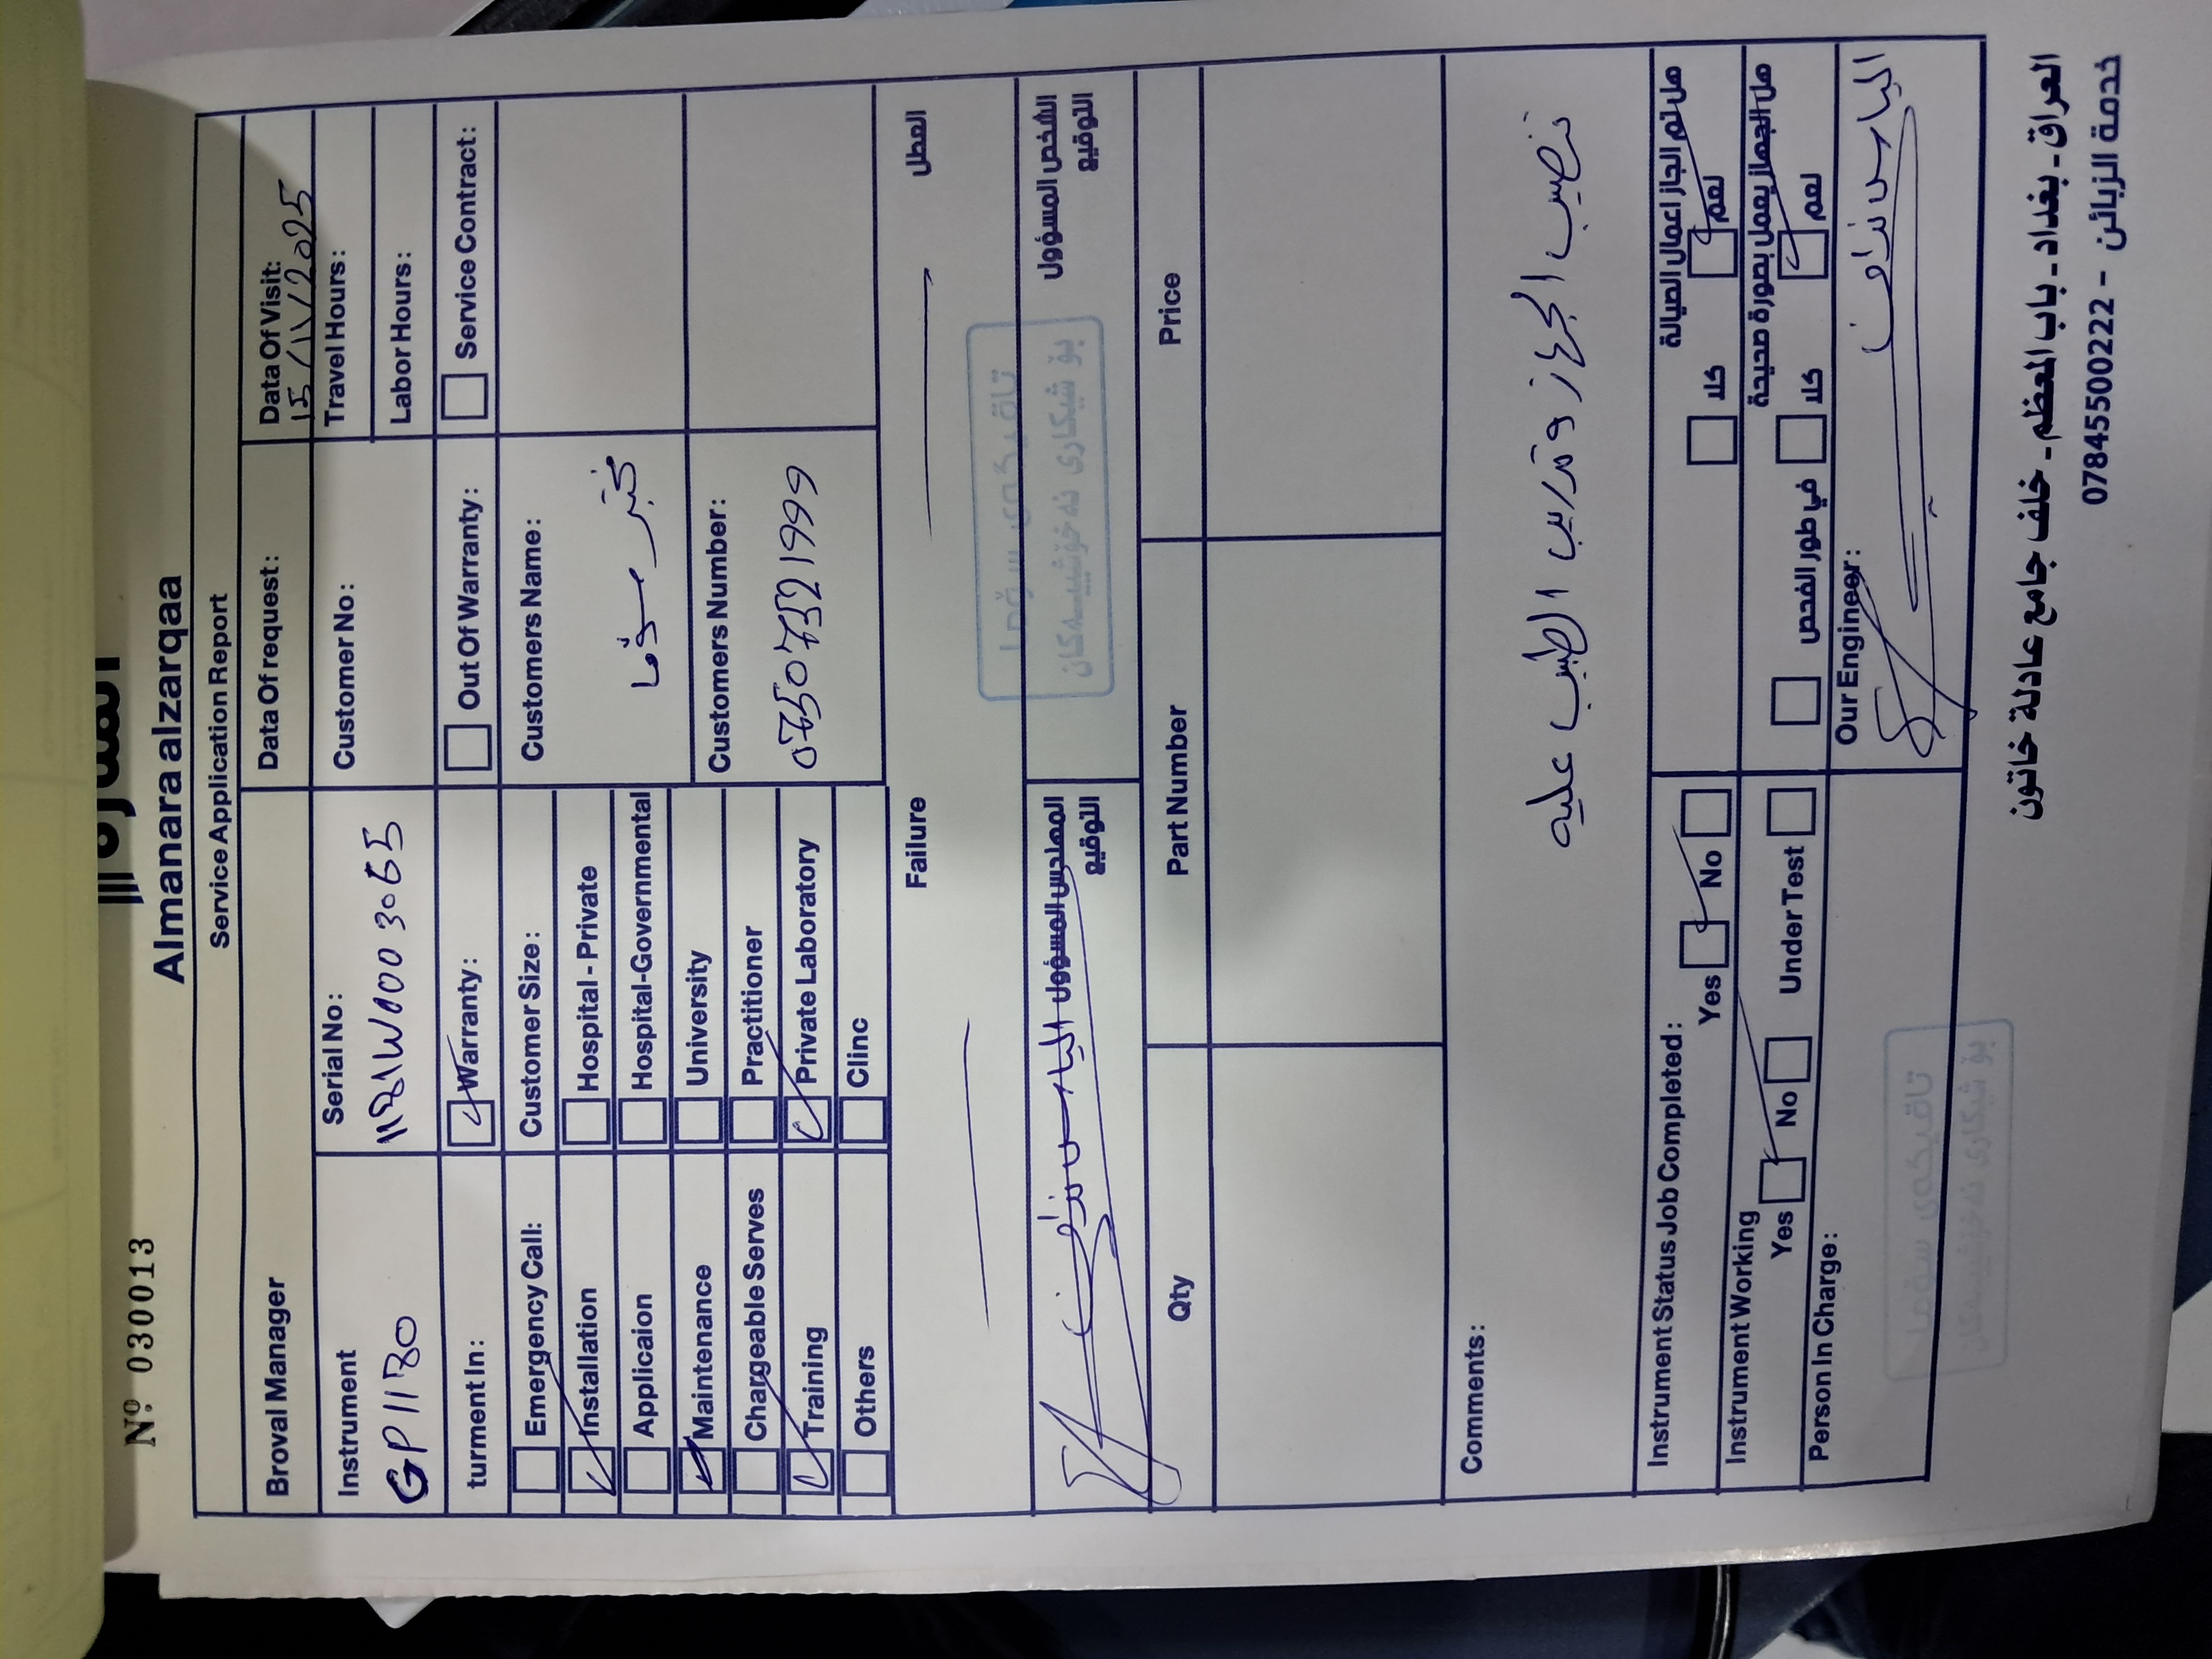 Nº 030013
Almanara alzarqaa
Service Application Report
Broval Manager
Data Of request:
Data Of Visit:
15/11/2025
Instrument
GP1180
Serial No:
Customer No:
Travel Hours:
Labor Hours:
turment In:
Warranty:
Out Of Warranty:
Service Contract:
Emergency Call:
Installation
Applicaion
Maintenance
Chargeable Serves
Training
Others
Customer Size:
Hospital - Private
Hospital-Governmental
University
Practitioner
Private Laboratory
Clinc
Customers Name:
مختبر سوما
Customers Number:
07507521999
Failure
العطل
المهندس المسؤول
التوقيع
الشخص المسؤول
التوقيع
تاقیگەی سۆما
بۆ شیکاری نەخۆشیەکان
Qty
Part Number
Price
Comments:
تنصيب الجهاز وتدريب الطبيب عليه
Instrument Status Job Completed:
Yes
No
هل تم انجاز اعمال الصيانة
كلا
نعم
Instrument Working
Yes
No
Under Test
هل الجهاز يعمل بصورة صحيحة
في طور الفحص
كلا
نعم
Person In Charge:
Our Engineer:
تاقیگەی سۆما
بۆ شیکاری نەخۆشیەکان
العراق - بغداد - باب المعظم - خلف جامع عادلة خاتون
خدمة الزبائن - 07845500222